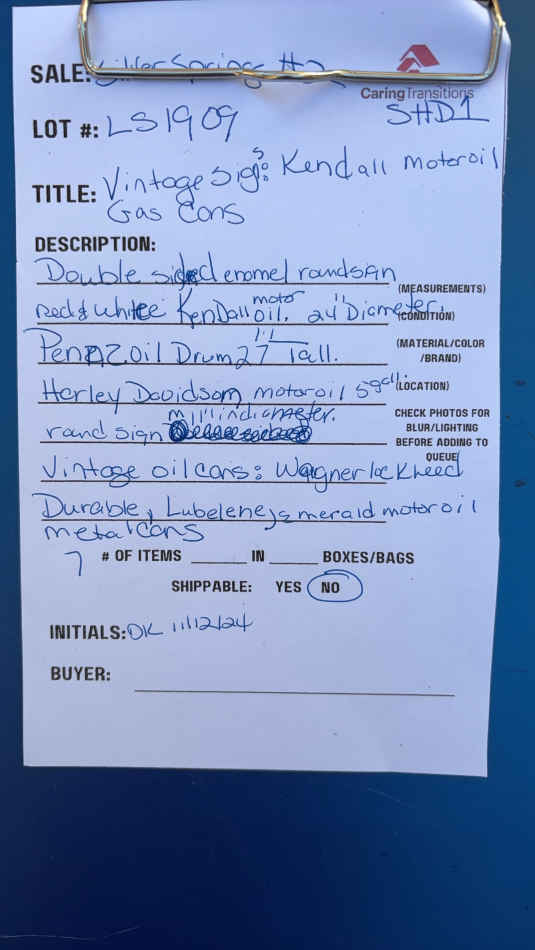 SALE: Silver Springs #2
CaringTransitions
LOT #: LS1909
SHD1
TITLE: Vintage Sigs: Kendall motoroil
Gas Cans
DESCRIPTION:
Double sided enamel roundsign
(MEASUREMENTS)
Red & white KenDall motor oil. 24" Diameter.
(CONDITION)
Pennzoil Drum 27" Tall.
(MATERIAL/COLOR
/BRAND)
Harley Davidson motor oil 5 gall.
(LOCATION)
round sign 11" in diameter.
CHECK PHOTOS FOR
BLUR/LIGHTING
BEFORE ADDING TO
QUEUE
Vintage oil cans: Wagner lockheed
Durable, Lubelene, emerald motor oil
metal cans
7 # OF ITEMS ______ IN ______ BOXES/BAGS
SHIPPABLE: YES NO
INITIALS: DK 11/12/24
BUYER: